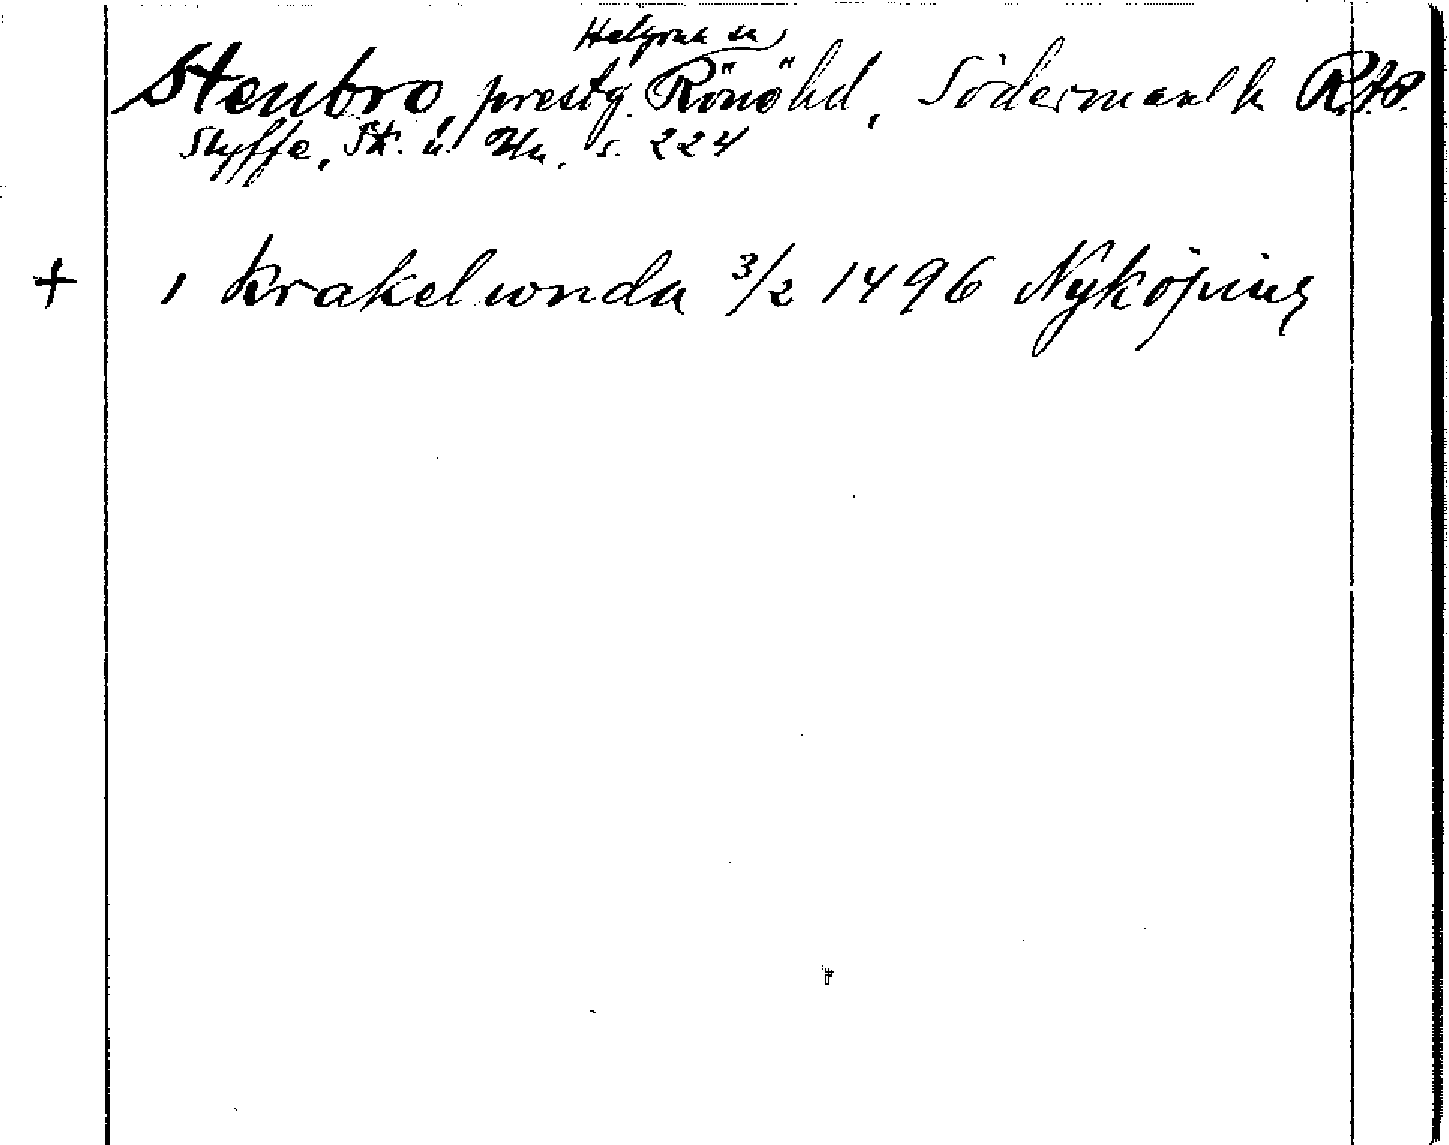 Helgona sn
Stenbro, prestg. Rönö hd, Södermanl k RAP.
Styffe, Sk. u. Un. s. 224
+ i krakelwnda 3/2 1496 Nyköping